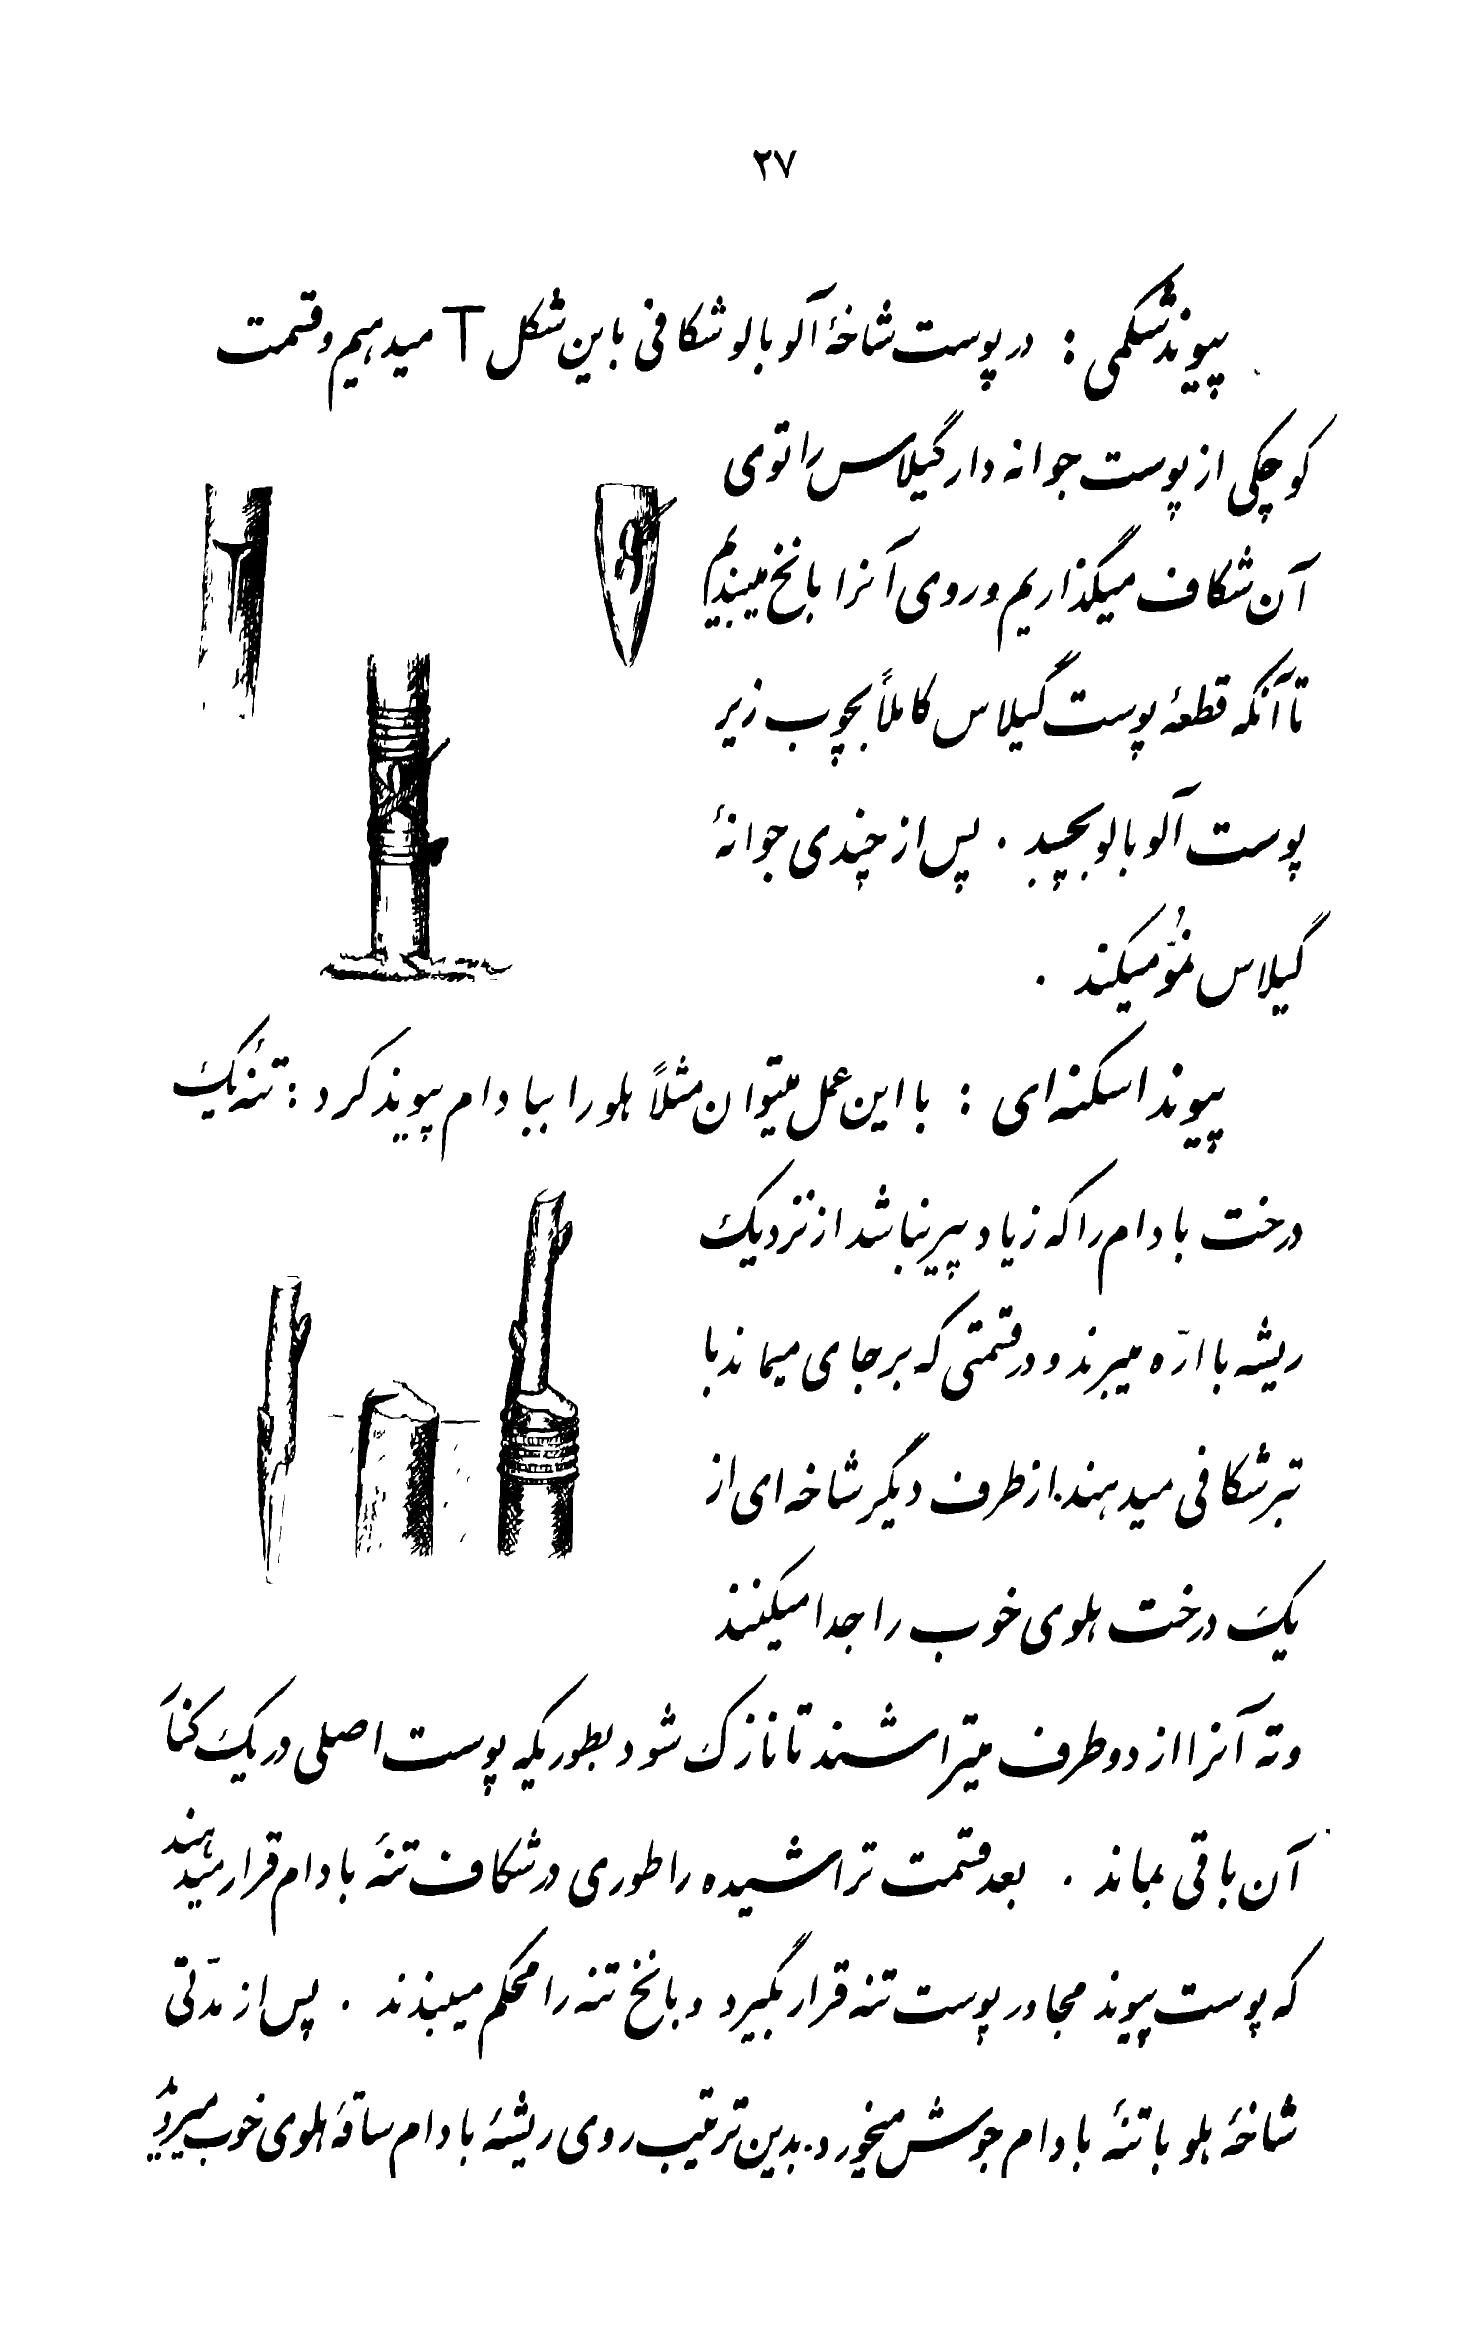 ۲۷
پیوند شکمی : در پوست شاخهٔ آلوبالو شکافی باین شکل T میدهیم و قسمت
کوچکی از پوست جوانه دار گیلاس را توی
آن شکاف میگذاریم و روی آنرا با نخ میبندیم
تا آنکه قطعهٔ پوست گیلاس کاملاً بچوب زیر
پوست آلوبالو بچسبد . پس از چندی جوانهٔ
گیلاس نموّ میکند .
پیوند اسکنه ای : با این عمل میتوان مثلاً هلو را ببادام پیوند کرد : تنهٔ یک
درخت بادام را که زیاد پیر نباشد از نزدیک
ریشه با ارّه میبرند و در قسمتی که بر جای میماند با
تبر شکافی میدهند. از طرف دیگر شاخه ای از
یک درخت هلوی خوب را جدا میکنند
و ته آنرا از دو طرف میتراشند تا نازک شود بطوریکه پوست اصلی در یک کنار
آن باقی بماند . بعد قسمت تراشیده را طوری در شکاف تنهٔ بادام قرار میدهند
که پوست پیوند مجاور پوست تنه قرار بگیرد و با نخ تنه را محکم میبندند . پس از مدّتی
شاخهٔ هلو با تنهٔ بادام جوش میخورد. بدین ترتیب روی ریشهٔ بادام ساقهٔ هلوی خوب میروید